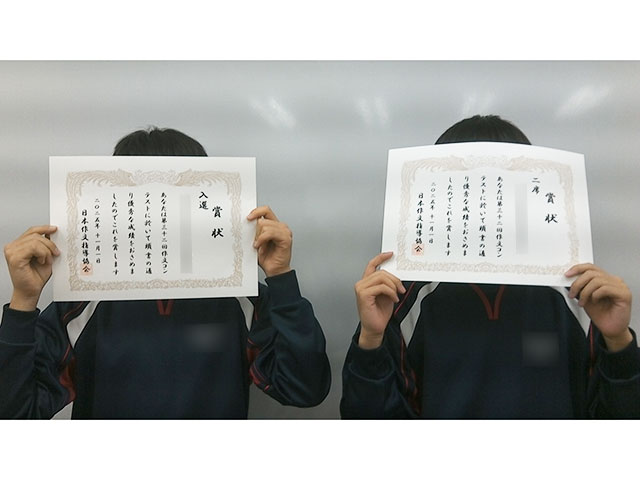 賞状
入選
あなたは第三十二回作文コン
テストに於いて頭書の通
り優秀な成績をおさめま
したのでこれを賞します
二〇二五年十一月一日
日本作文指導協会
賞状
二席
あなたは第三十二回作文コン
テストに於いて頭書の通
り優秀な成績をおさめま
したのでこれを賞します
二〇二五年十一月一日
日本作文指導協会